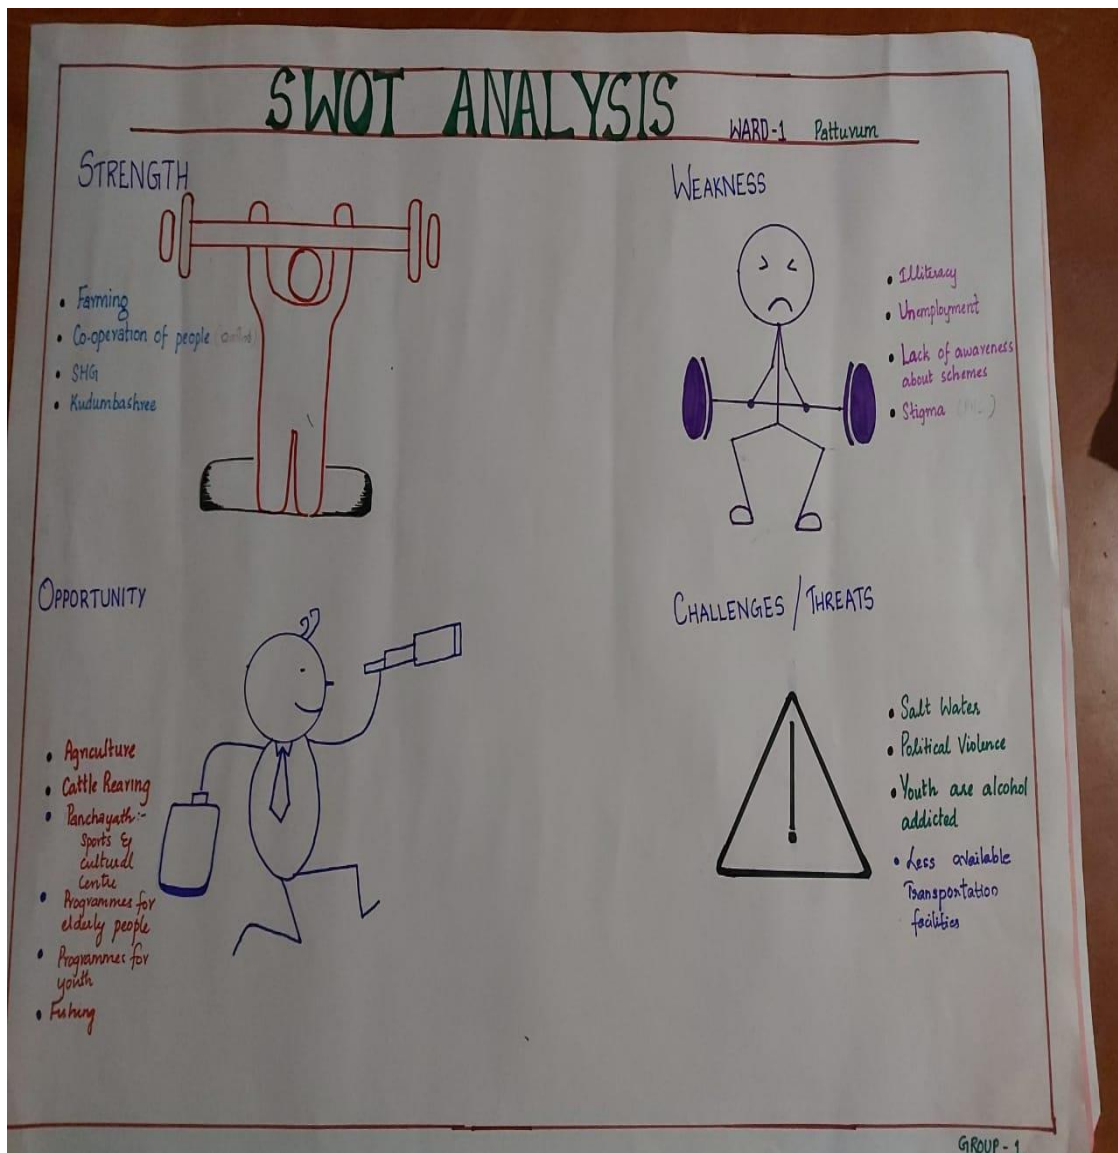 SWOT ANALYSIS
WARD-1 Pattuvum
STRENGTH
• Farming
• Co-operation of people
• SHG
• Kudumbashree
WEAKNESS
• Illiteracy
• Unemployment
• Lack of awareness
about schemes
• Stigma
OPPORTUNITY
• Agriculture
• Cattle Rearing
• Panchayath:-
sports &
cultural
centre
• Programmes for
elderly people
• Programmes for
youth
• Fishing
CHALLENGES / THREATS
• Salt Water
• Political Violence
• Youth are alcohol
addicted
• Less available
Transportation
facilities
GROUP - 1